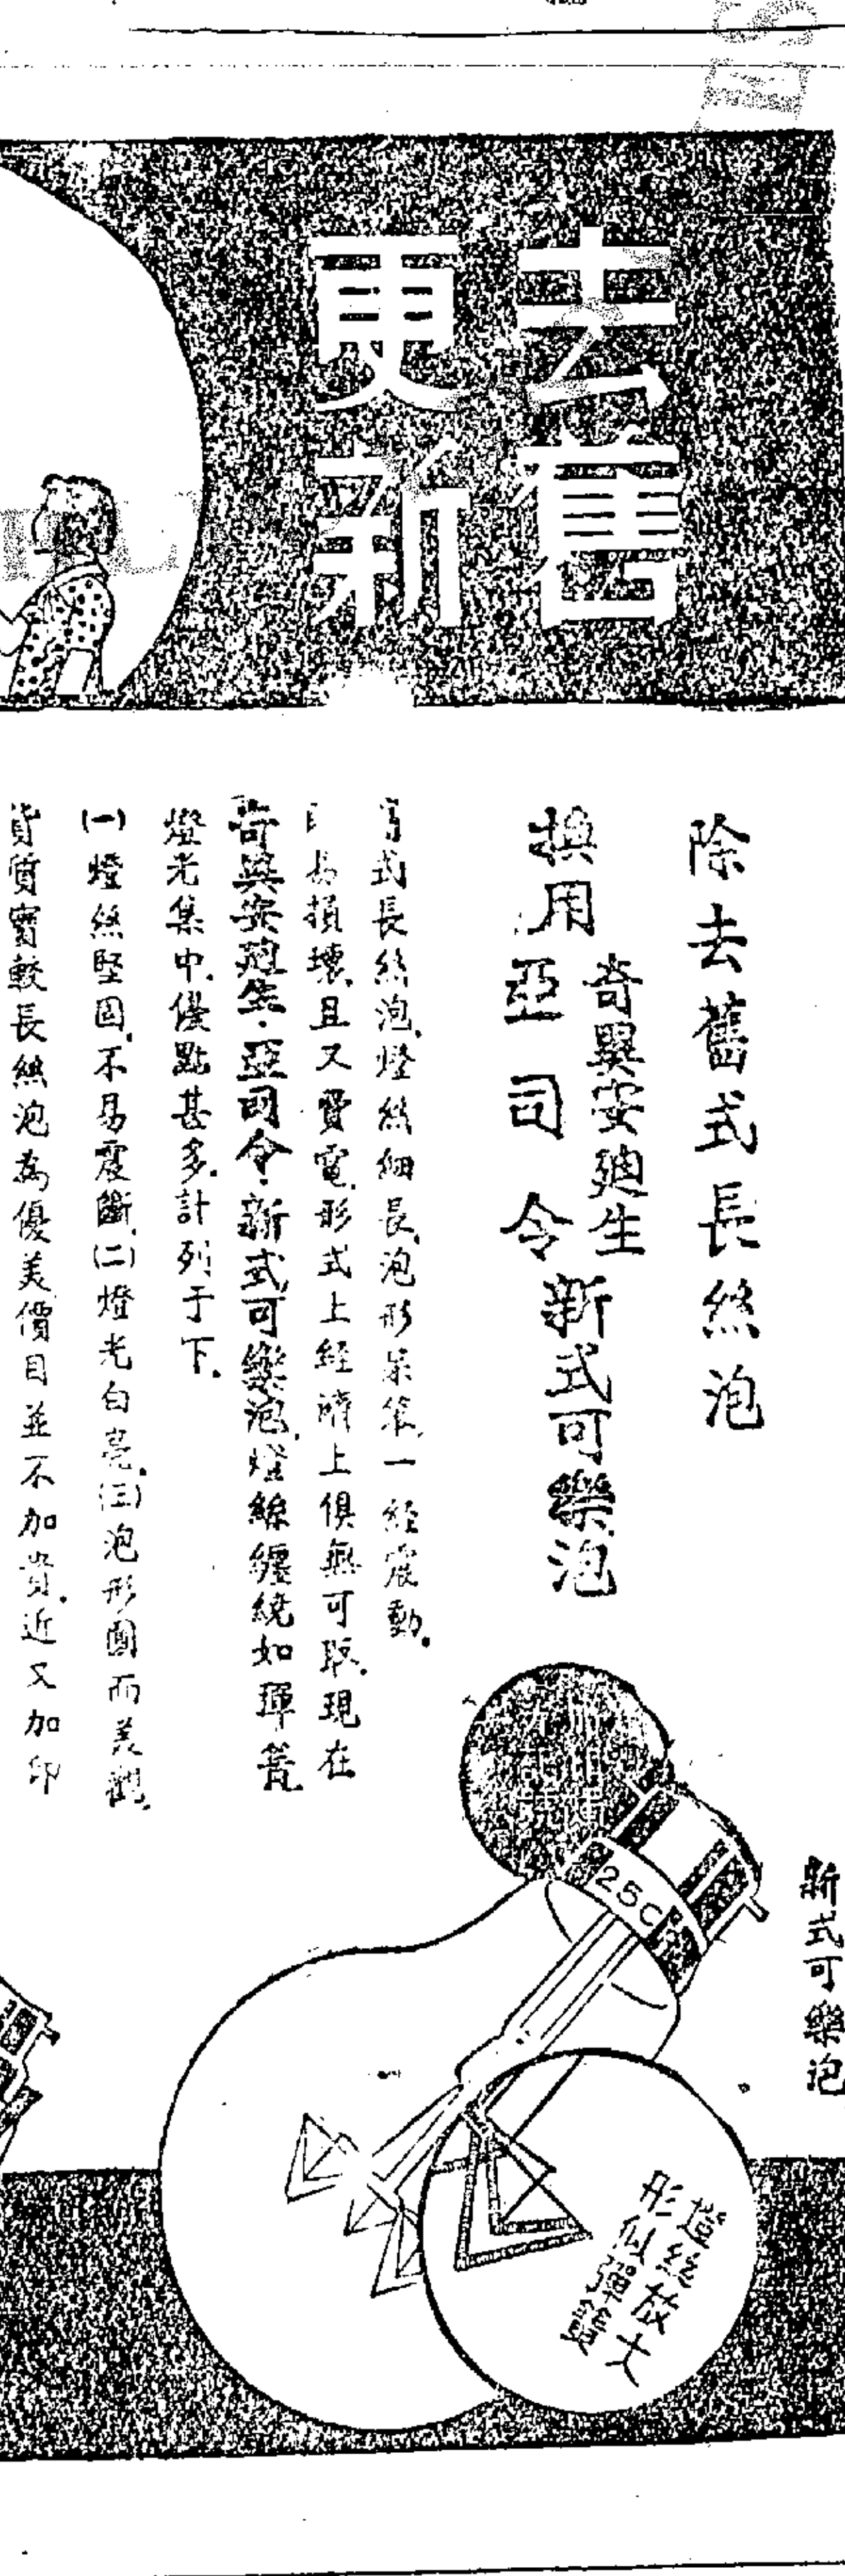 去舊
更新
除去舊式長絲泡
換用
奇異安廸生
亞司令
新式可樂泡
舊式長絲泡、燈絲細長、泡形呆笨、一經震動、
易損壞、且又費電、形式上經濟上俱無可取、現在
奇異安廸生·亞司令·新式可樂泡、燈絲纏繞如彈簧、
燈光集中、優點甚多、計列于下、
(一)燈絲堅固、不易震斷、(二)燈光白亮、(三)泡形圓而美觀、
貨質實較長絲泡為優美價目並不加貴、近又加印
新式可樂泡
25C
燈絲放大
形似彈簧